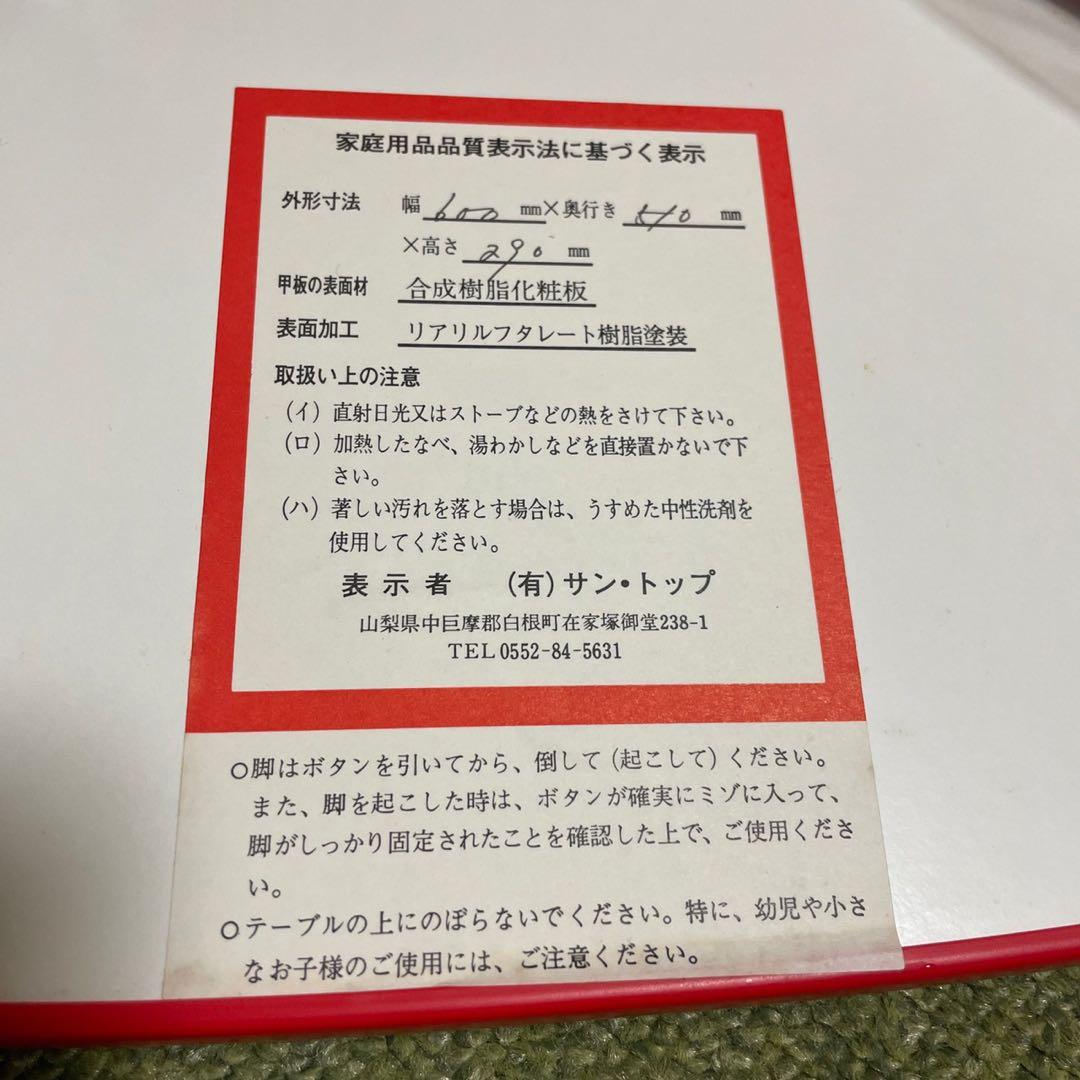 家庭用品品質表示法に基づく表示
外形寸法 幅 600 mm×奥行き mm
×高さ 290 mm
甲板の表面材 合成樹脂化粧板
表面加工 リアリルフタレート樹脂塗装
取扱い上の注意
(イ) 直射日光又はストーブなどの熱をさけて下さい。
(ロ) 加熱したなべ、湯わかしなどを直接置かないで下
さい。
(ハ) 著しい汚れを落とす場合は、うすめた中性洗剤を
使用してください。
表示者 (有)サン・トップ
山梨県中巨摩郡白根町在家塚御堂238-1
TEL 0552-84-5631
○脚はボタンを引いてから、倒して(起こして)ください。
また、脚を起こした時は、ボタンが確実にミゾに入って、
脚がしっかり固定されたことを確認した上で、ご使用くださ
い。
○テーブルの上にのぼらないでください。特に、幼児や小さ
なお子様のご使用には、ご注意ください。